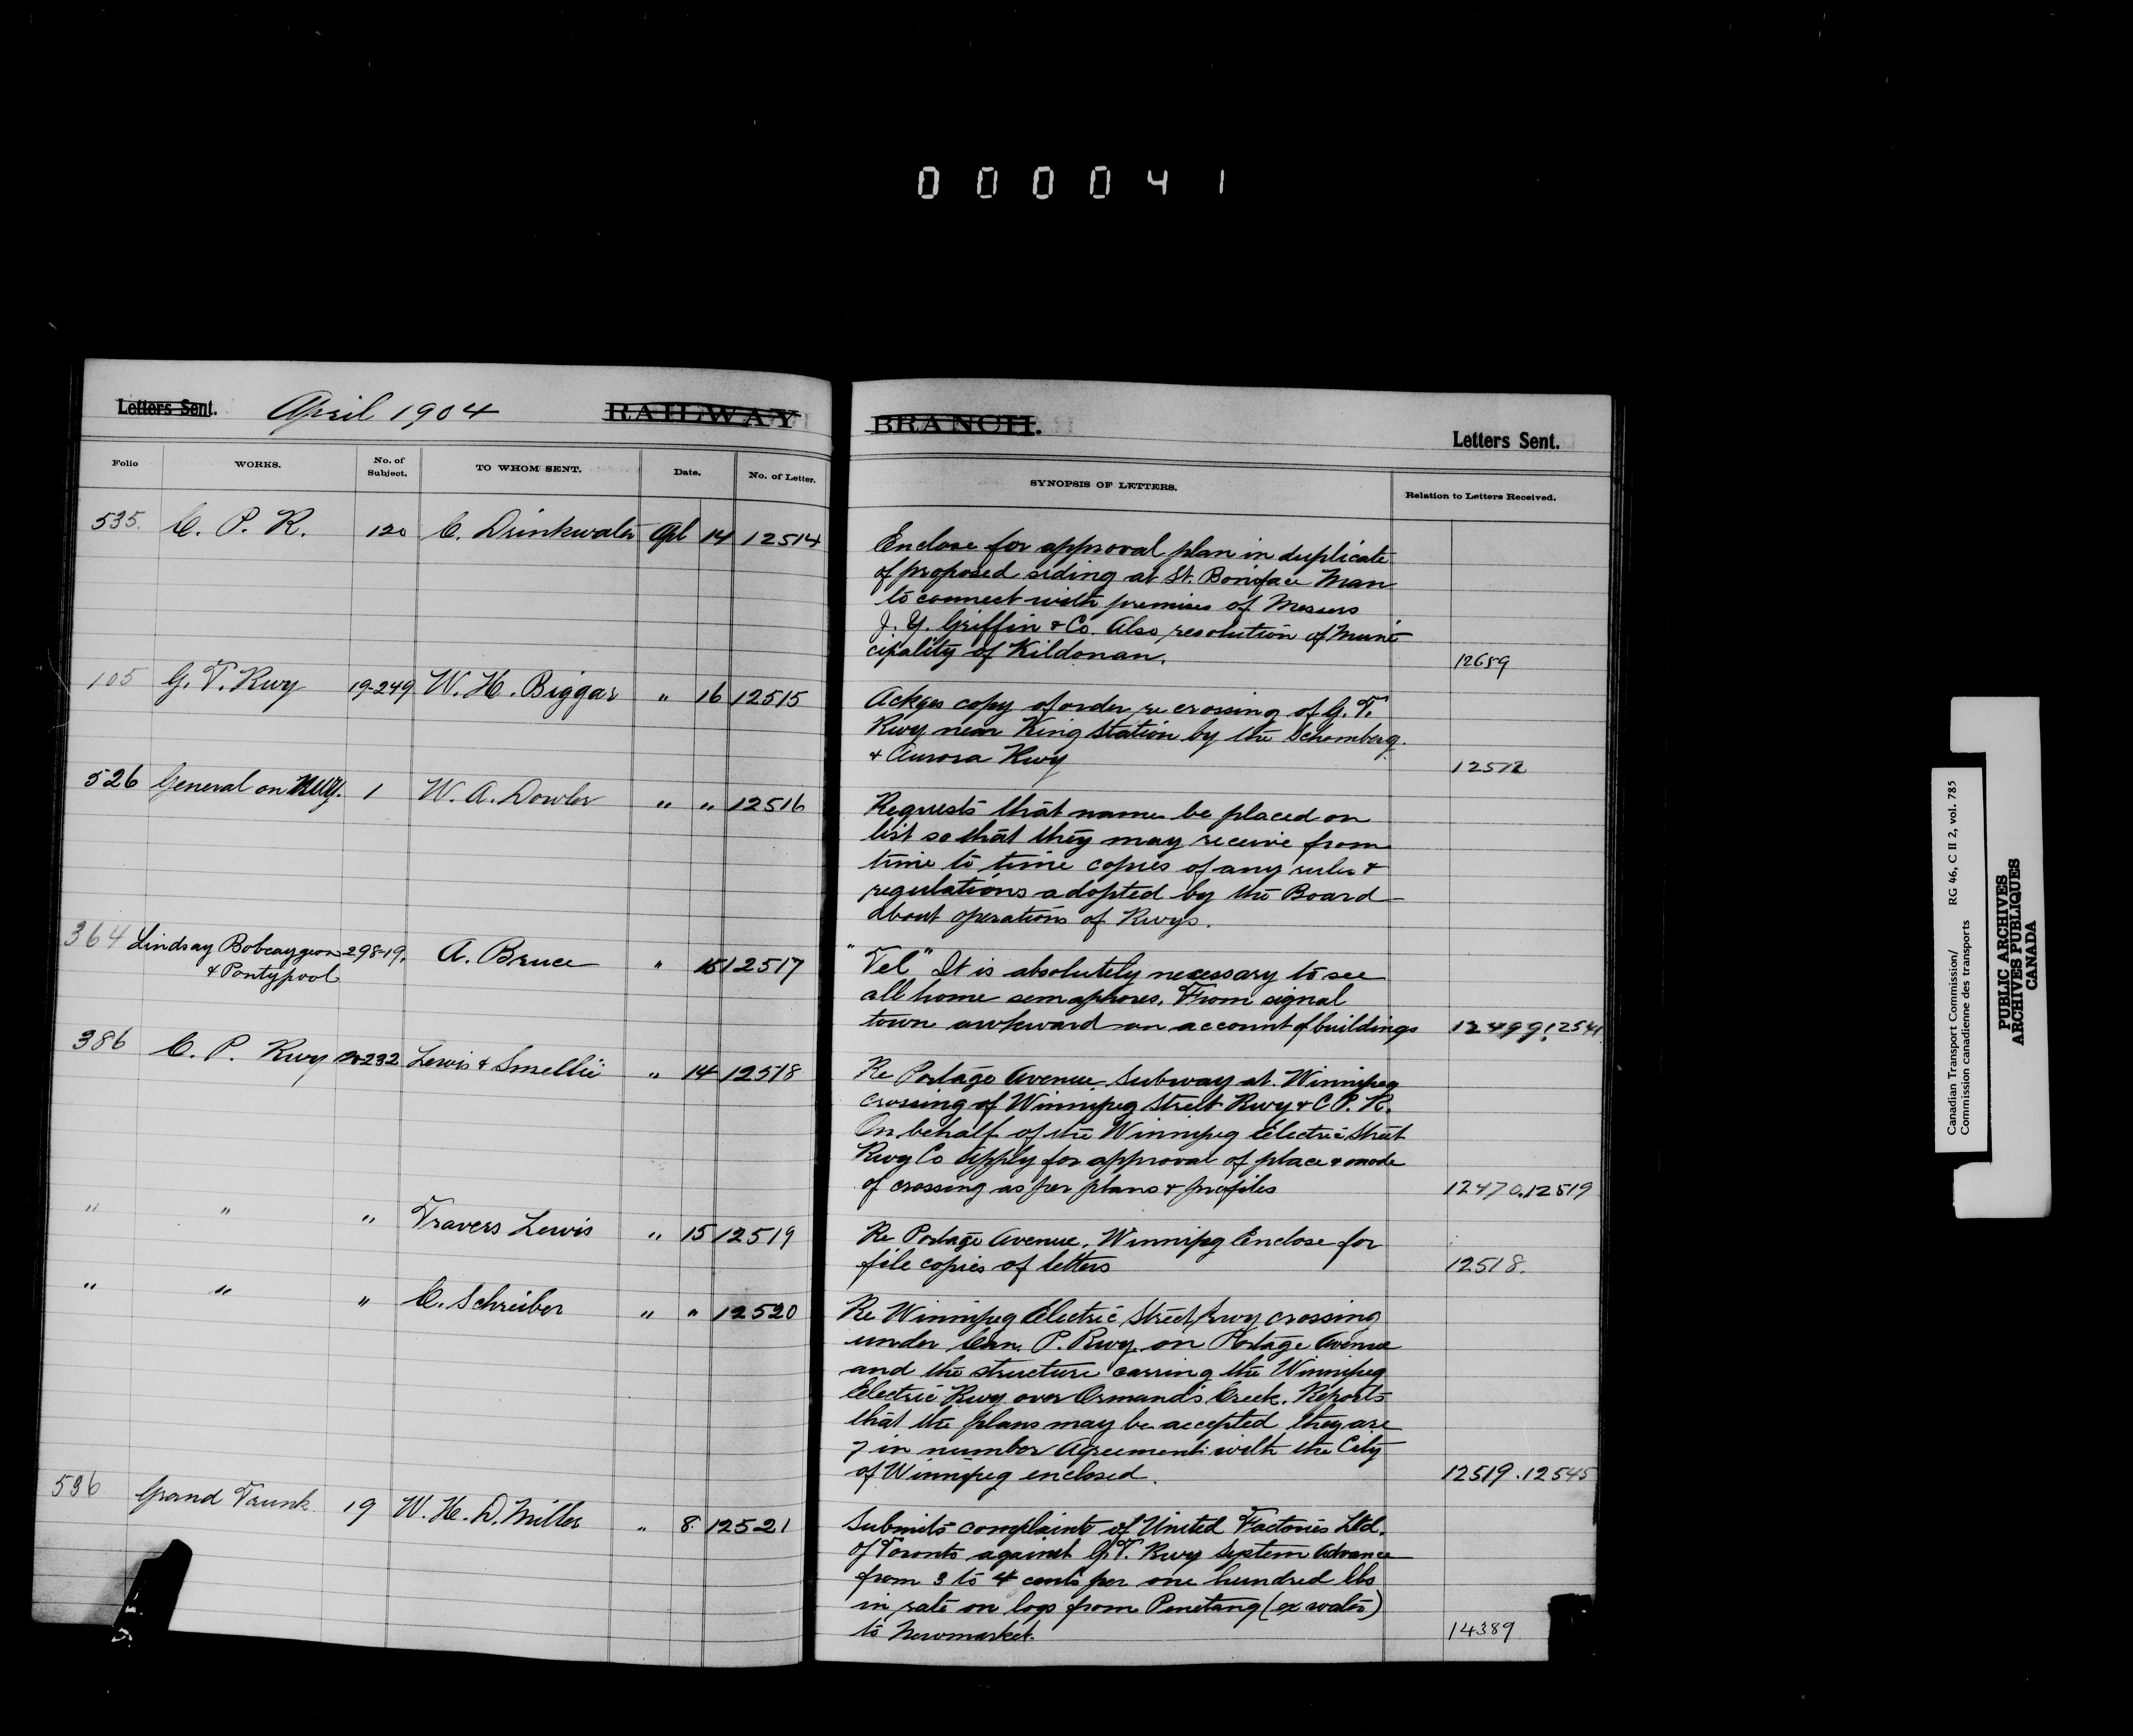 000041
Letters Sent. April 1904 RAILWAY
Folio WORKS. No. of Subject. TO WHOM SENT. Date. No. of Letter.
535. C. P. R. 120 C. Drinkwater Apl 14 12514
105 G. T. Rwy 19-249 W. H. Biggar " 16 12515
526 General on Rwy. 1 W. A. Dowler " " 12516
364 Lindsay Bobcaygeon 298-19. A. Bruce " 15 12517
& Pontypool
386 C. P. Rwy 232 Lewis & Smellie " 14 12518
" " " Travers Lewis " 15 12519
" " " C. Schreiber " " 12520
536 Grand Trunk 19 W. H. D. Miller " 8. 12521
BRANCH. Letters Sent.
SYNOPSIS OF LETTERS. Relation to Letters Received.
Enclose for approval plan in duplicate
of proposed siding at St. Boniface Man
to connect with premises of Messrs
J. Y. Griffin & Co. Also resolution of Muni-
cipality of Kildonan. 12659
Ackges copy of order re crossing of G. T.
Rwy near King Station by the Schomberg
& Aurora Rwy 12512
Requests that name be placed on
list so that they may receive from
time to time copies of any rules &
regulations adopted by the Board
about operations of Rwys.
"Tel" It is absolutely necessary to see
all home semaphores. From signal
town awkward on account of buildings 12499.12541
Re Portage Avenue Subway at Winnipeg
crossing of Winnipeg Street Rwy & C.P. R.
On behalf of the Winnipeg Electric Street
Rwy Co apply for approval of place & mode
of crossing as per plans & profiles 12470.12519
Re Portage Avenue, Winnipeg Enclose for
file copies of letters 12518.
Re Winnipeg Electric Street Rwy crossing
under Can. P. Rwy. on Portage Avenue
and the structure carring the Winnipeg
Electric Rwy over Ormand's Creek. Reports
that the plans may be accepted, they are
7 in number Agreement with the City
of Winnipeg enclosed. 12519.12545
Submits complaint of United Factories Ltd.
of Toronto against G. T. Rwy System Advance
from 3 to 4 cents per one hundred lbs
in rate on logs from Penetang (ex water)
to Newmarket. 14389
Canadian Transport Commission/ RG 46, C II 2, vol. 785
Commission canadienne des transports
PUBLIC ARCHIVES
ARCHIVES PUBLIQUES
CANADA